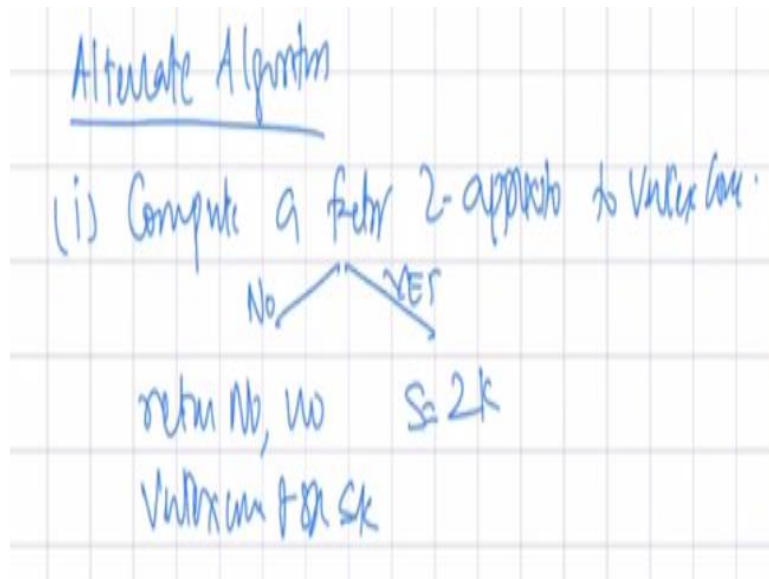 Alternate Algorithm
(i) Compute a factor 2-approx to Vertex Cover.
No YES
return No, no S=2k
Vertex cover for ≤k